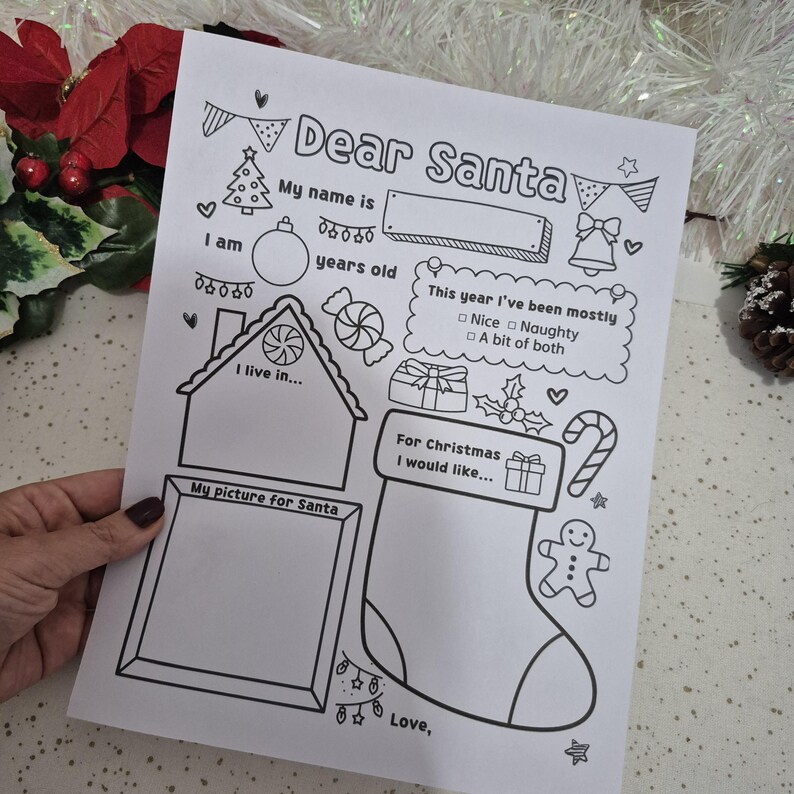 Dear Santa
My name is
I am
years old
This year I've been mostly
□ Nice □ Naughty
□ A bit of both
I live in...
For Christmas
I would like...
My picture for Santa
Love,